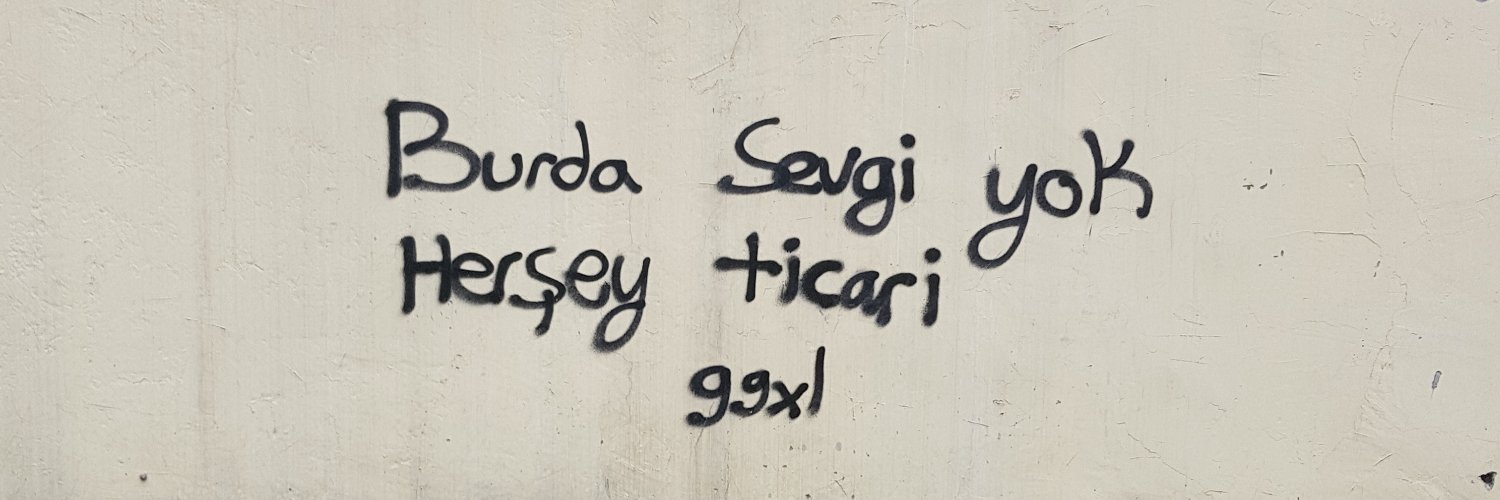 Burda Sevgi yok
Herşey ticari
ggxl